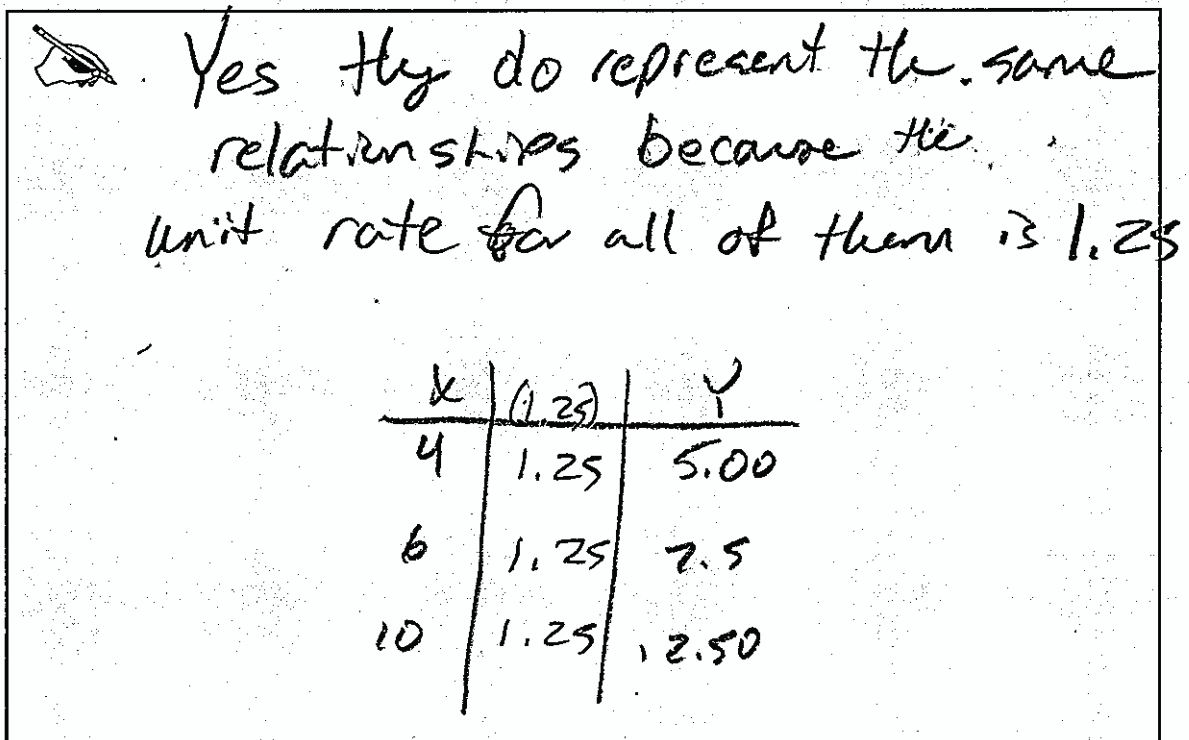 Yes they do represent the same
relationships because the
unit rate for all of them is 1.25
x (1.25) Y
4 1.25 5.00
6 1.25 7.5
10 1.25 12.50